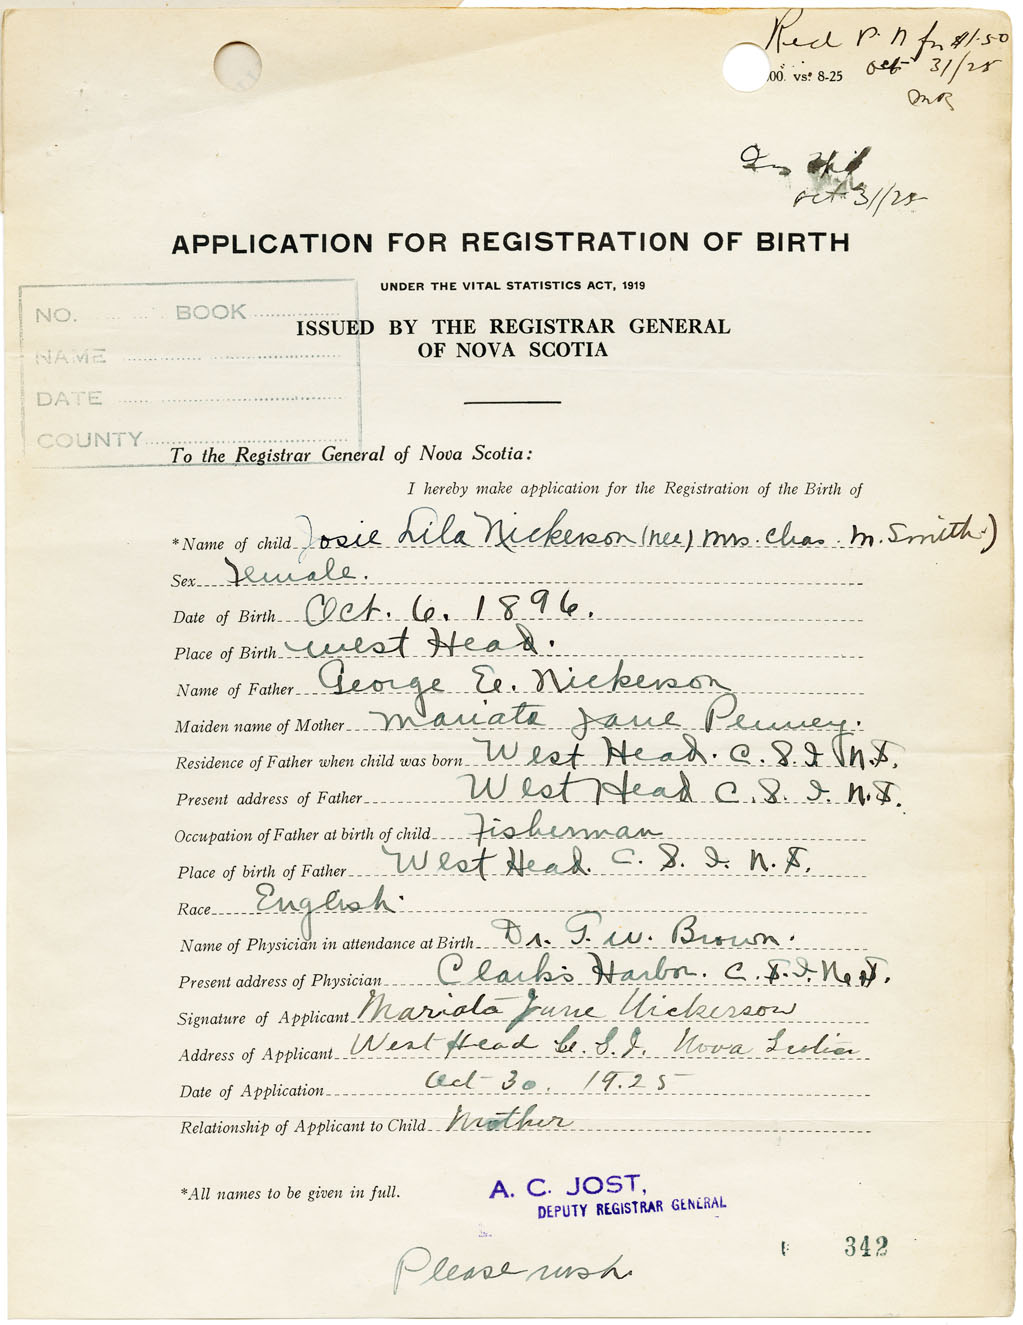 Rec'd P. N for $1.50
00. vs. 8-25 Oct 31/25
MB
Oct 31/25
APPLICATION FOR REGISTRATION OF BIRTH
UNDER THE VITAL STATISTICS ACT, 1919
NO. BOOK
ISSUED BY THE REGISTRAR GENERAL
OF NOVA SCOTIA
NAME
DATE
COUNTY
To the Registrar General of Nova Scotia:
I hereby make application for the Registration of the Birth of
*Name of child Josie Lila Nickerson (nee) Mrs. Chas. M. Smith)
Sex Female.
Date of Birth Oct. 6. 1896.
Place of Birth West Head.
Name of Father George E. Nickerson
Maiden name of Mother Mariata Jane Penney.
Residence of Father when child was born West Head. C. S. I N.S.
Present address of Father West Head C. S. I. N.S.
Occupation of Father at birth of child Fisherman
Place of birth of Father West Head. C. S. I. N. S.
Race English.
Name of Physician in attendance at Birth Dr. T. W. Brown.
Present address of Physician Clark's Harbor. C. S. I. N. S.
Signature of Applicant Mariata Jane Nickerson
Address of Applicant West Head C. S. I. Nova Scotia
Date of Application Oct 30. 1925
Relationship of Applicant to Child Mother
*All names to be given in full.
A. C. JOST,
DEPUTY REGISTRAR GENERAL
342
Please rush.